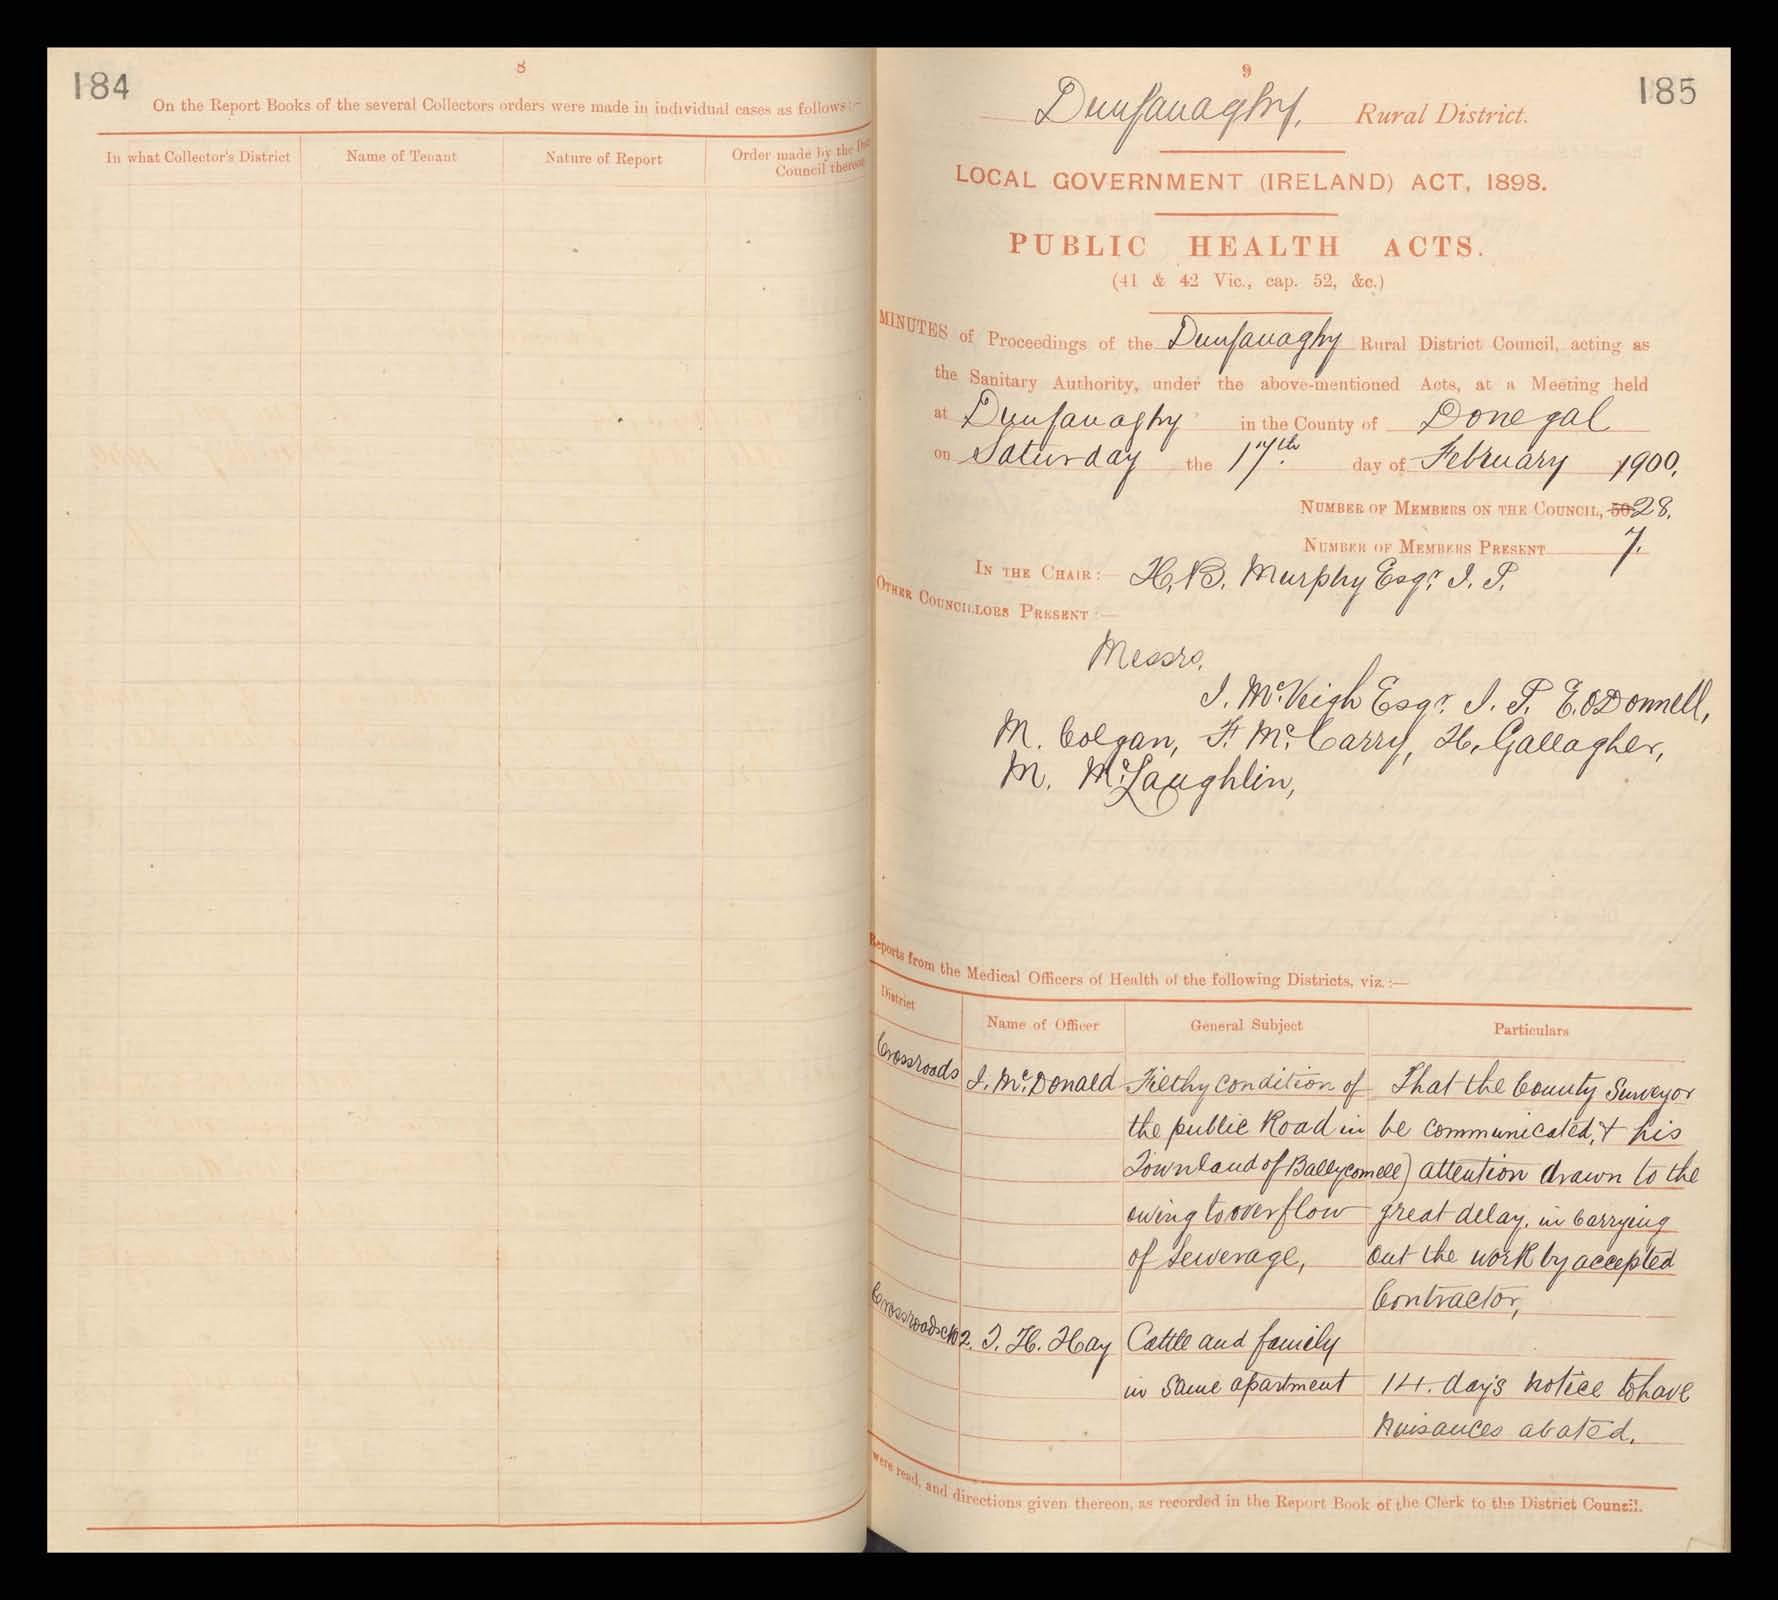 184
8
On the Report Books of the several Collectors orders were made in individual cases as follows:—
In what Collector's District
Name of Tenant
Nature of Report
Order made by the
Council thereon
9
185
Dunfanaghy, Rural District.
LOCAL GOVERNMENT (IRELAND) ACT, 1898.
PUBLIC HEALTH ACTS.
(41 & 42 Vic., cap. 52, &c.)
MINUTES of Proceedings of the Dunfanaghy Rural District Council, acting as
the Sanitary Authority, under the above-mentioned Acts, at a Meeting held
at Dunfanaghy in the County of Donegal
on Saturday the 17th day of February 1900,
NUMBER OF MEMBERS ON THE COUNCIL, 28.
NUMBER OF MEMBERS PRESENT 7.
IN THE CHAIR:— H. B. Murphy Esqr. J. P.
OTHER COUNCILLORS PRESENT:—
Messrs.
J. McVeigh Esqr. J. P. E. O'Donnell,
M. Colgan, F. McCarry, H. Gallagher,
M. McLaughlin,
Reports from the Medical Officers of Health of the following Districts, viz.:—
District
Name of Officer
General Subject
Particulars
Crossroads J. McDonald Filthy condition of That the County Surveyor
the public Road in be communicated, & his
Townland of Ballyconnell) attention drawn to the
owing to overflow great delay, in carrying
of sewerage, out the work by accepted
Contractor,
Crossroads No 2. J. H. Hay Cattle and family
in same apartment 14. day's notice to have
nuisances abated.
were read, and directions given thereon, as recorded in the Report Book of the Clerk to the District Council.